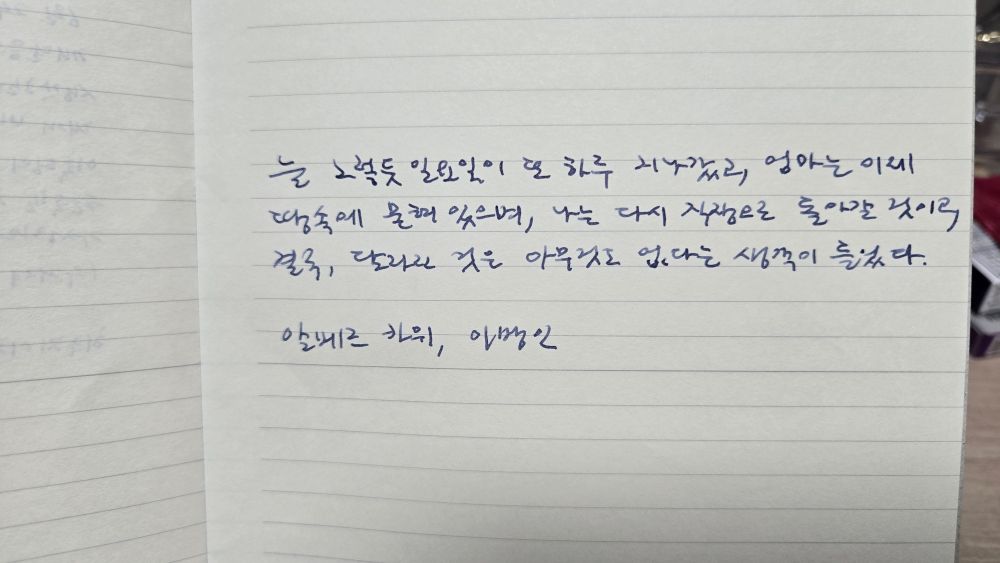 늘 그렇듯 일요일이 또 하루 지나갔고, 엄마는 이제
땅속에 묻혀 있으며, 나는 다시 직장으로 돌아갈 것이고,
결국, 달라진 것은 아무것도 없다는 생각이 들었다.
알베르 카뮈, 이방인